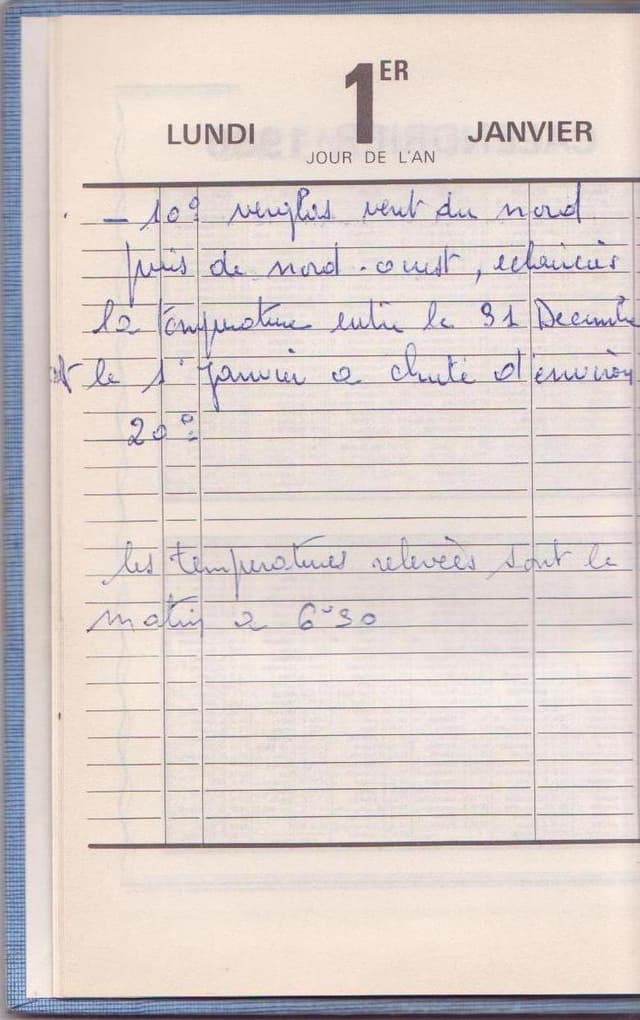 1ER
LUNDI JANVIER
JOUR DE L'AN
- 10° verglas vent du nord
puis de nord-ouest, eclaircies
la temperature entre le 31 Decembre
et le 1° janvier a chuté d'environ
20°
les temperatures relevées sont le
matin a 6°30